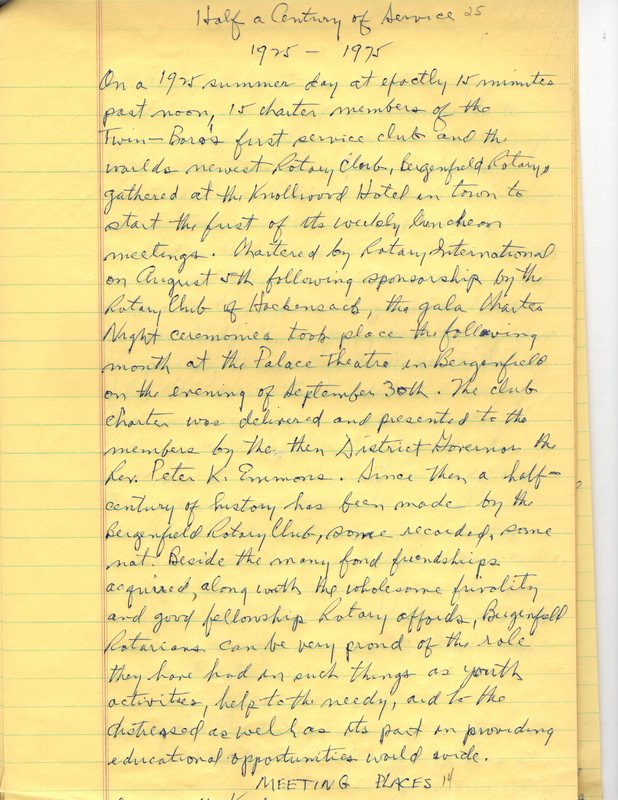 Half a Century of Service 25
1925 - 1975
On a 1925 summer day at exactly 15 minutes
past noon, 15 charter members of the
Twin-Boro's first service club and the
worlds newest Rotary Club, Bergenfield Rotary,
gathered at the Knollwood Hotel in town to
start the first of its weekly luncheon
meetings. Chartered by Rotary International
on August 5th following sponsorship by the
Rotary Club of Hackensack, the gala Charter
Night ceremonies took place the following
month at the Palace Theatre in Bergenfield
on the evening of September 30th. The club
charter was delivered and presented to the
members by the then District Governor the
Rev. Peter K. Emmons. Since then a half-
century of history has been made by the
Bergenfield Rotary Club, some recorded, some
not. Beside the many fond friendships
acquired, along with the wholesome frivolity
and good fellowship Rotary affords, Bergenfield
Rotarians can be very proud of the role
they have had in such things as youth
activities, help to the needy, and to the
distressed as well as its part in providing
educational opportunities world wide.
MEETING PLACES 14